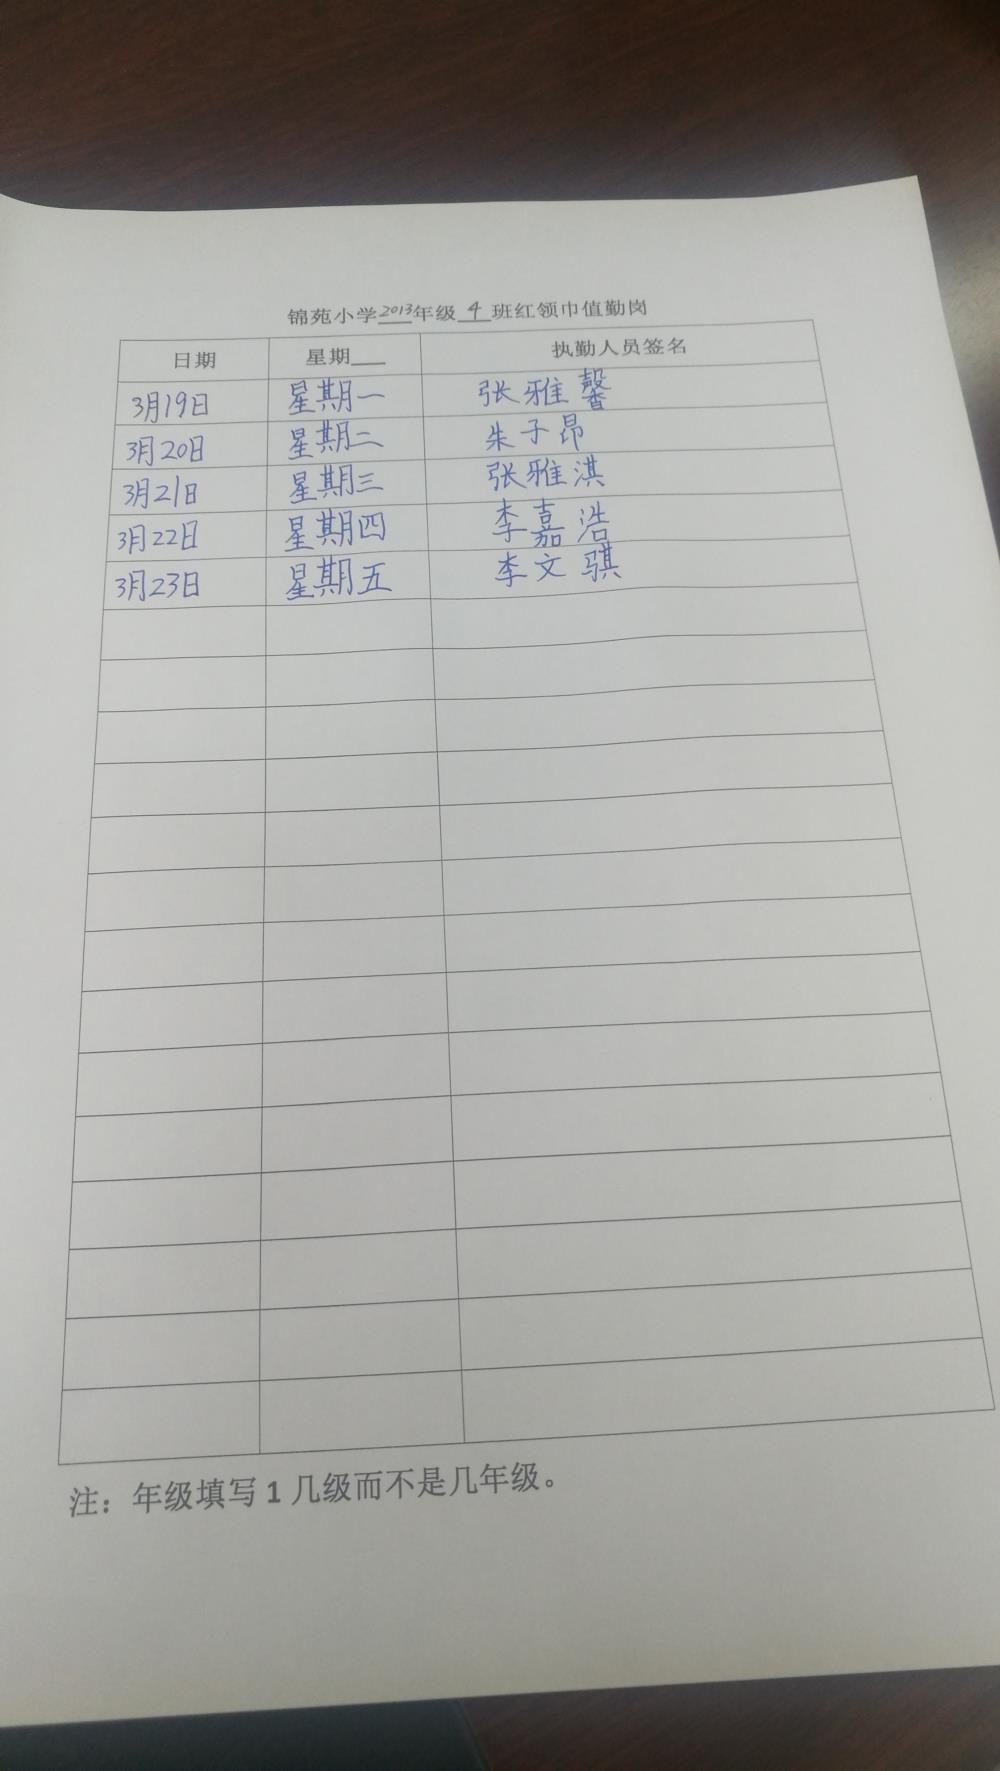 锦苑小学2013年级4班红领巾值勤岗
日期 星期___ 执勤人员签名
3月19日 星期一 张雅馨
3月20日 星期二 朱子昂
3月21日 星期三 张雅淇
3月22日 星期四 李嘉浩
3月23日 星期五 李文骐
注：年级填写1几级而不是几年级。